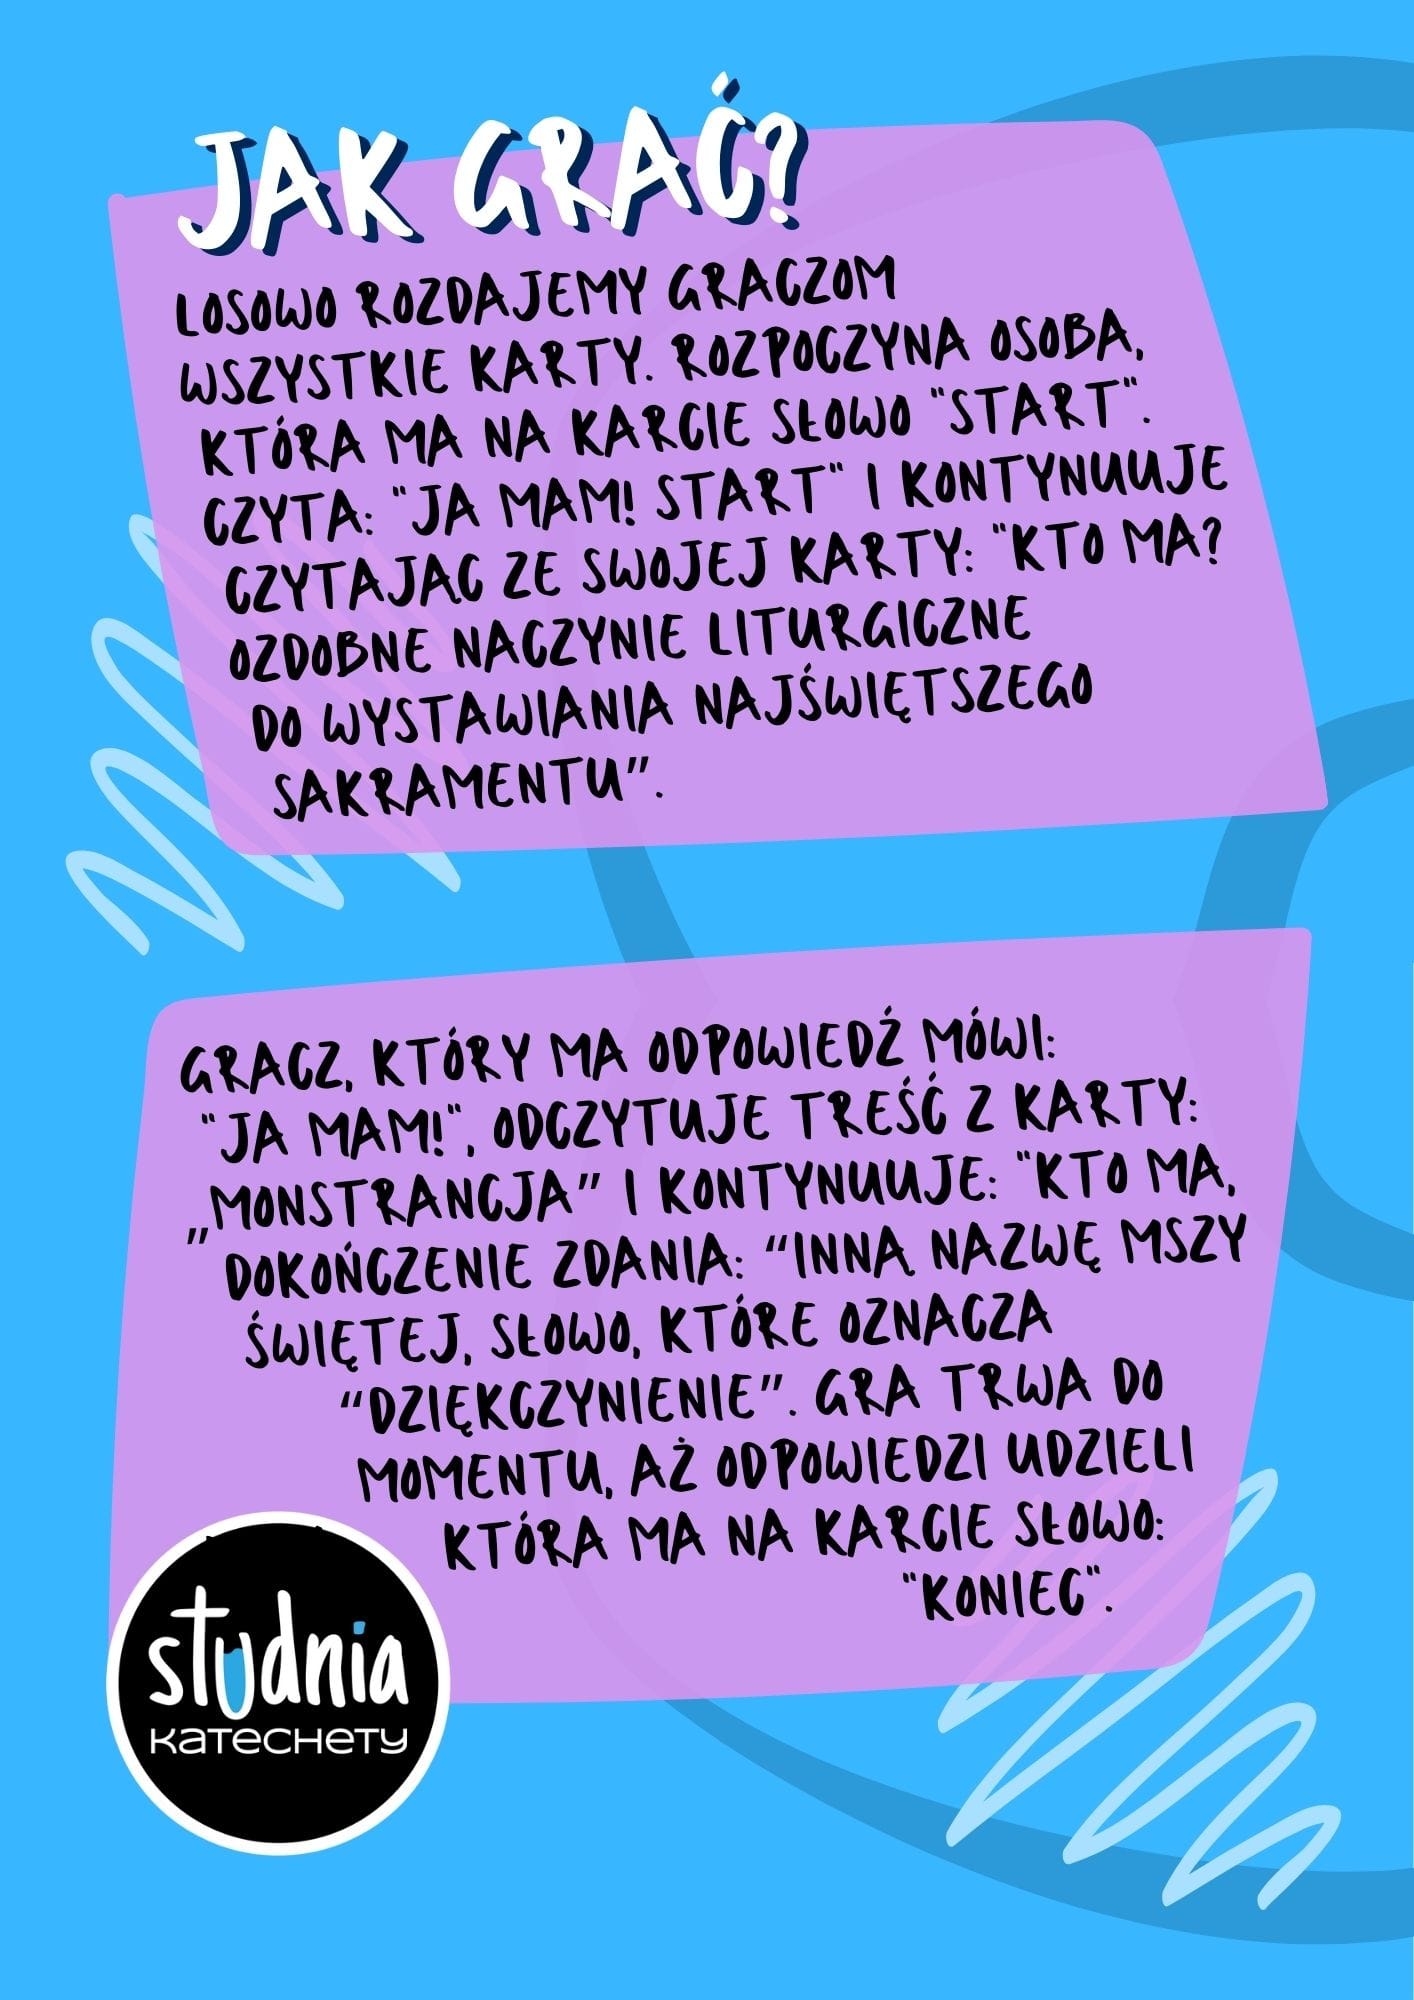 JAK GRAĆ?
LOSOWO ROZDAJEMY GRACZOM
WSZYSTKIE KARTY. ROZPOCZYNA OSOBA,
KTÓRA MA NA KARCIE SŁOWO "START".
CZYTA: "JA MAM! START" I KONTYNUUJE
CZYTAJĄC ZE SWOJEJ KARTY: "KTO MA?
OZDOBNE NACZYNIE LITURGICZNE
DO WYSTAWIANIA NAJŚWIĘTSZEGO
SAKRAMENTU”.
GRACZ, KTÓRY MA ODPOWIEDŹ MÓWI:
"JA MAM!", ODCZYTUJE TREŚĆ Z KARTY:
„MONSTRANCJA” I KONTYNUUJE: "KTO MA,
DOKOŃCZENIE ZDANIA: “INNĄ NAZWĘ MSZY
ŚWIĘTEJ, SŁOWO, KTÓRE OZNACZA
“DZIĘKCZYNIENIE”. GRA TRWA DO
MOMENTU, AŻ ODPOWIEDZI UDZIELI
KTÓRA MA NA KARCIE SŁOWO:
"KONIEC".
studnia
KATECHETY